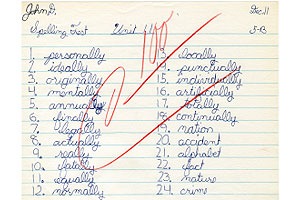 John D.
Dec. 11
Spelling Test Unit 11
5-B
1. personally
2. ideally
3. originally
4. mentally
5. annually
6. finally
7. legally
8. actually
9. really
10. fatally
11. equally
12. normally
13. locally
14. punctually
15. individually
16. artificially
17. totally
18. continually
19. nation
20. accident
21. alphabet
22. fact
23. mature
24. crime
100